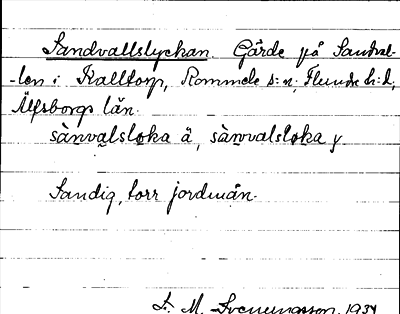 Sandvallslyckan. Gärde på Sandval-
-len i Kalltorp, Rommele s:n, Flundre h:d,
Älfsborgs län.
sànvalsloka ä, sànvalsloka y.
Sandig, torr jordmån.
F. M. Svenungsson. 1934